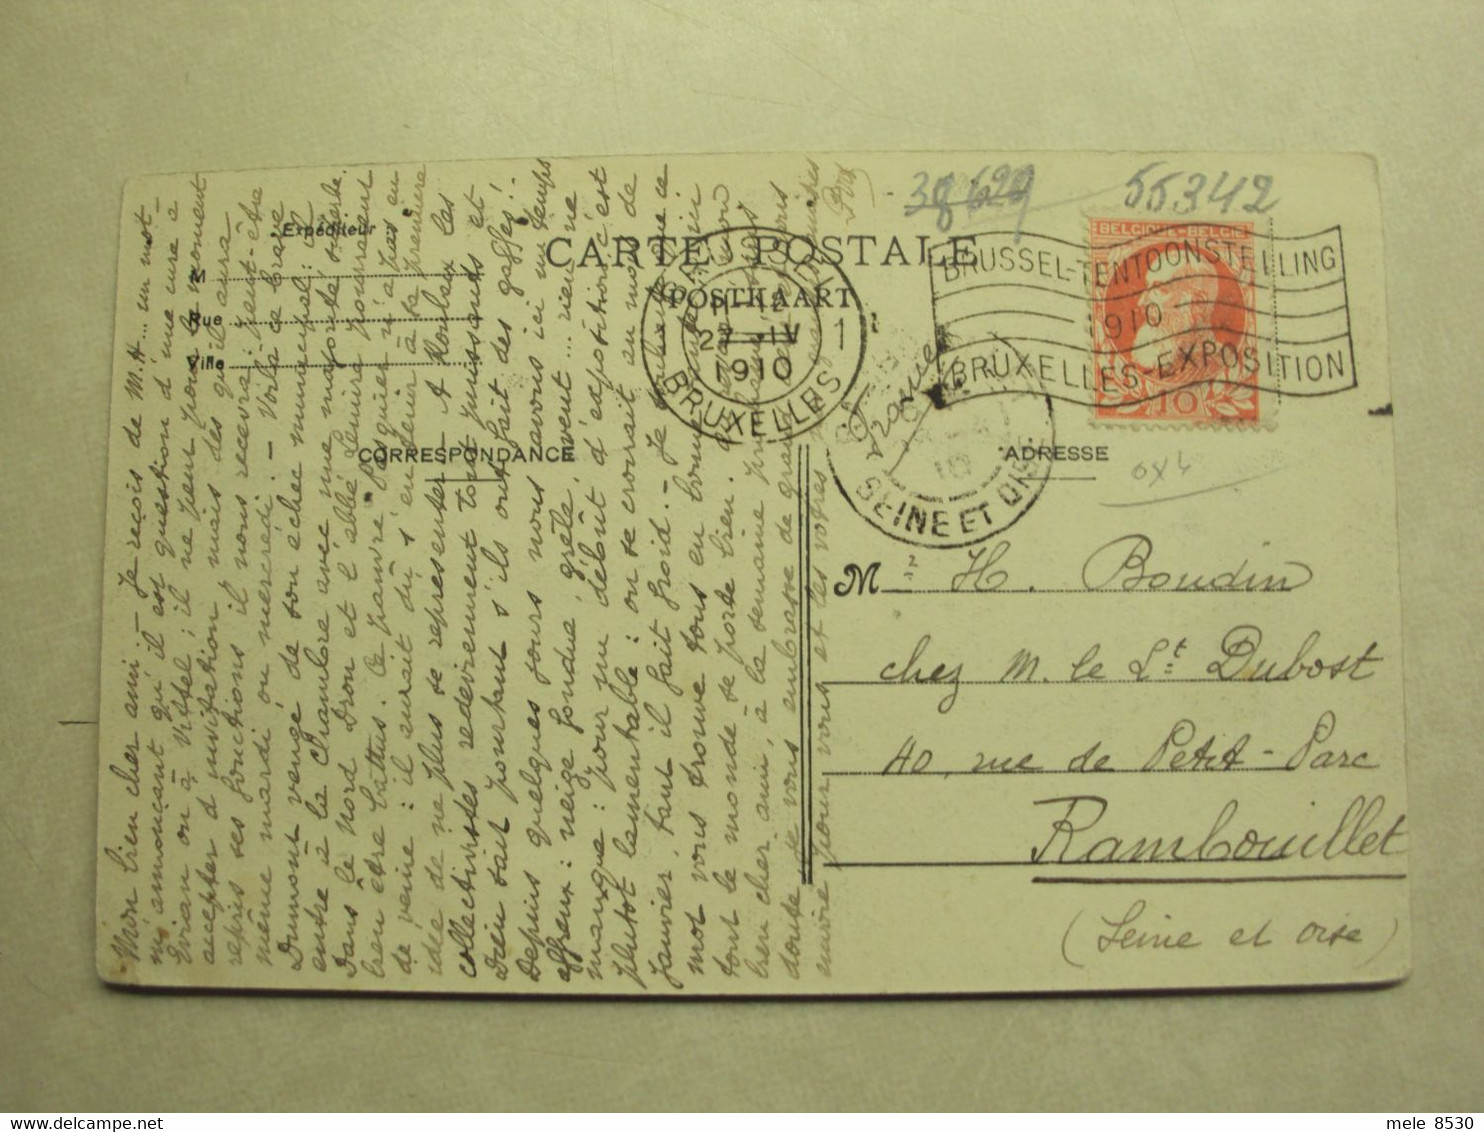 38629
55342
Expéditeur
N°
Rue
Ville
CARTE POSTALE
POSTKAART
BRUXELLES
11-12
27 IV
1910
1
BRUXELLES
BELGIQUE-BELGIE
10
BRUSSEL-TENTOONSTELLING
1910
BRUXELLES-EXPOSITION
SEINE ET OISE
CORRESPONDANCE
ADRESSE
0x4
M H. Boudin
chez M. le Lt Dubost
40, rue de Petit-Parc
Rambouillet
(Seine et Oise)
Mon bien cher ami. - Je reçois de M. H... un mot
m'annonçant qu'il est question d'une cure à
Evian ou à Vittel ; il ne peut pour le moment
accepter d'invitation mais dès qu'il aura
repris ses fonctions il nous recevra : peut-être
même mardi ou mercredi. - Voilà ce brave
Dumont vengé de son échec municipal : il
entre à la Chambre avec une majorité superbe.
Dans le Nord Dron et l'abbé Lemire pourraient
bien être battus. Ce pauvre Pasquier n'a pas eu
de veine : il aurait dû s'en tenir à sa première
idée de ne plus se représenter. A Roubaix les
collectivistes redeviennent tout puissants et
Dieu sait pourtant s'ils ont fait des gaffes ! -
Depuis quelques jours nous avons ici un temps
affreux : neige fondue, grêle, vent... rien ne
manque ; pour un début d'exposition c'est
plutôt lamentable : on se croirait au mois de
janvier, tant il fait froid. - Je souhaite que ce
mot vous trouve tous en bonne santé ; ici
tout le monde se porte bien. Au revoir mon
bien cher ami, à la semaine prochaine sans
doute. Je vous embrasse de grand cœur
pour vous et les vôtres